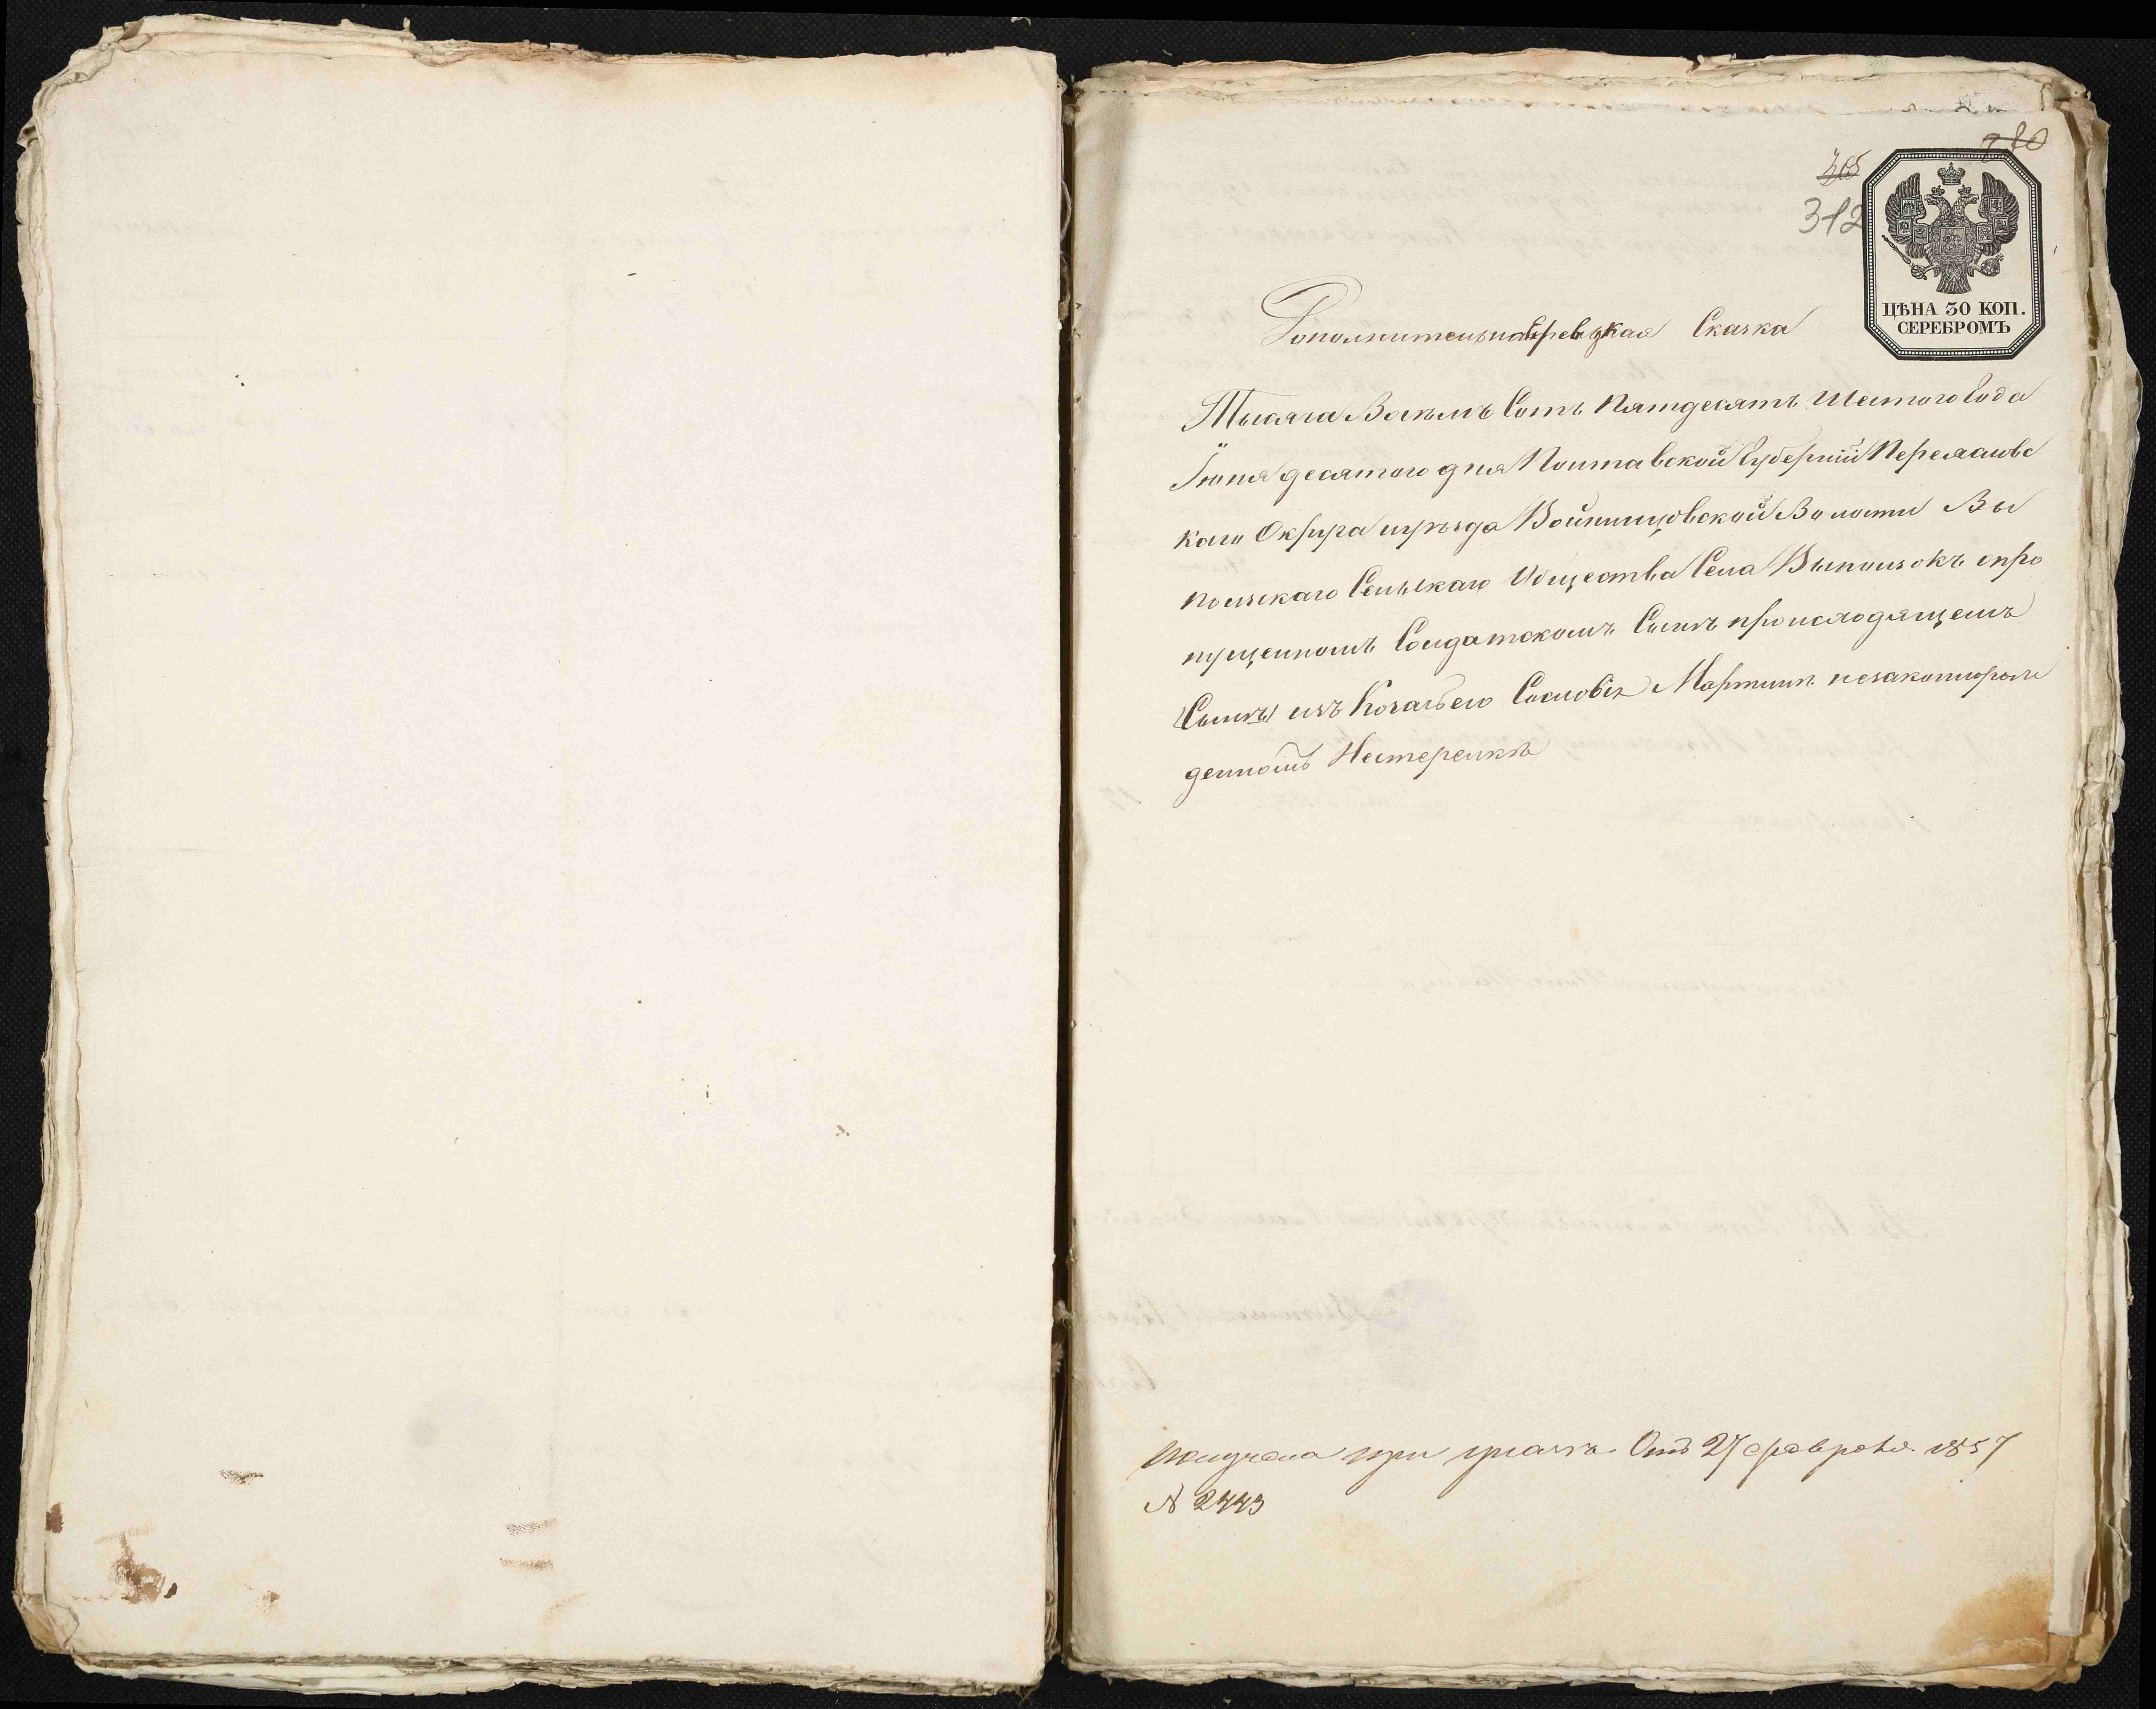 280
305
312
ЦѢНА 30 КОП.
СЕРЕБРОМЪ
Дополнительная ревизкая Сказка
Тысяча Восемъ Сотъ Пятдесятъ Шестого Года
Іюня десятого дня Полтавской Губерніи Переяславс
кого Округа уѣзда Войтинцовской Волости Вы
ползскаго Сельскаго Общества Села Выползокъ опро
пущенномъ Солдатскомъ Сынѣ происходящемъ
Сынѣ изъ Козачьего Сословія Мартинѣ незаконнорож
денномъ Нестеренкѣ
Получена при указѣ Отъ 27 февраля 1857
№ 2443